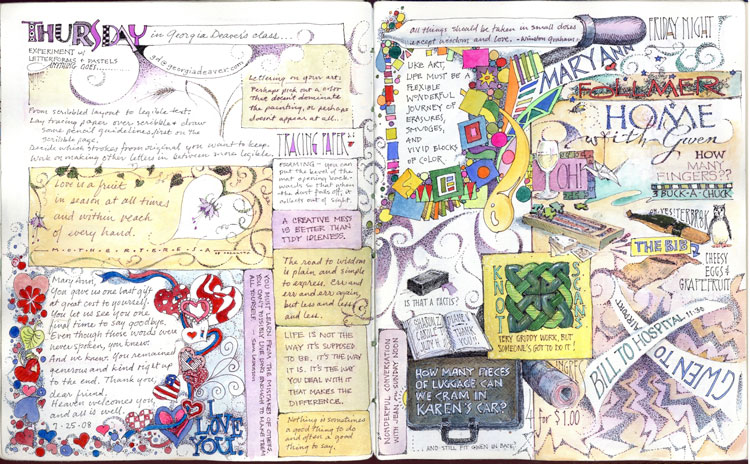 THURSDAY in Georgia Deaver's class...
EXPERIMENT w/
LETTERFORMS + PASTELS
ANYTHING GOES...
sd@georgiadeaver.com
From scribbled layout to legible text.
Lay tracing paper over scribble & draw
some pencil guidelines first on the
scribble page.
Decide which strokes from original you want to keep.
Work on making other letters in between more legible.
Lettering on your art:
Perhaps pick out a color
that doesn't dominate
the painting, or perhaps
doesn't appear at all.
TRACING PAPER
FOAMING - you can
cut the bevel of the
mat opening work
words so that when
the dust falls off, it
collects out of sight.
Love is a fruit
in season at all times
and within reach
of every hand.
MOTHER TERESA OF CALCUTTA
A CREATIVE MESS
IS BETTER THAN
TIDY IDLENESS.
The road to wisdom
is plain and simple
to express. Err and
err and err again,
but less and less
and less.
LIFE IS NOT THE
WAY IT'S SUPPOSED
TO BE, IT'S THE WAY
IT IS. IT'S THE WAY
YOU DEAL WITH IT
THAT MAKES THE
DIFFERENCE.
Nothing is sometimes
a good thing to do
and often a good
thing to say.
Mary Ann,
You gave us one last gift
at great cost to yourself.
You let us see you one
final time to say goodbye.
Even though those words were
never spoken, you knew.
And we knew. You remained
generous and kind right up
to the end. Thank you,
dear friend.
Heaven welcomes you
and all is well.
7-25-08
I LOVE
YOU.
YOU MUST LEARN FROM THE MISTAKES OF OTHERS.
YOU CAN'T POSSIBLY LIVE LONG ENOUGH TO MAKE THEM
ALL YOURSELF. - SAM LEVENSON
All things should be taken in small doses
except wisdom and love. - Winston Graham
LIKE ART,
LIFE MUST BE A
FLEXIBLE
WONDERFUL
JOURNEY OF
ERASURES,
SMUDGES,
AND
VIVID BLOCKS
OF COLOR
FRIDAY NIGHT
MARY ANN
FOLLMER
HOME
with Gwen
HOW
MANY
FINGERS??
BUCK-A-CHUCK
YESTERDAY
THE BIB
CHEESY
EGGS &
GRAPEFRUIT
IS THAT A FACTIS?
KNOT
SCANT
VERY GRIDDY WORK, BUT
SOMEONE'S GOT TO DO IT!
WONDERFUL CONVERSATION
WITH JEAN SUNDAY NOON
HOW MANY PIECES
OF LUGGAGE CAN
WE CRAM IN
KAREN'S CAR?
... AND STILL FIT GWEN IN BACK?
BILL TO HOSPITAL 11:30
GWEN TO
AIRPORT
for $1.00